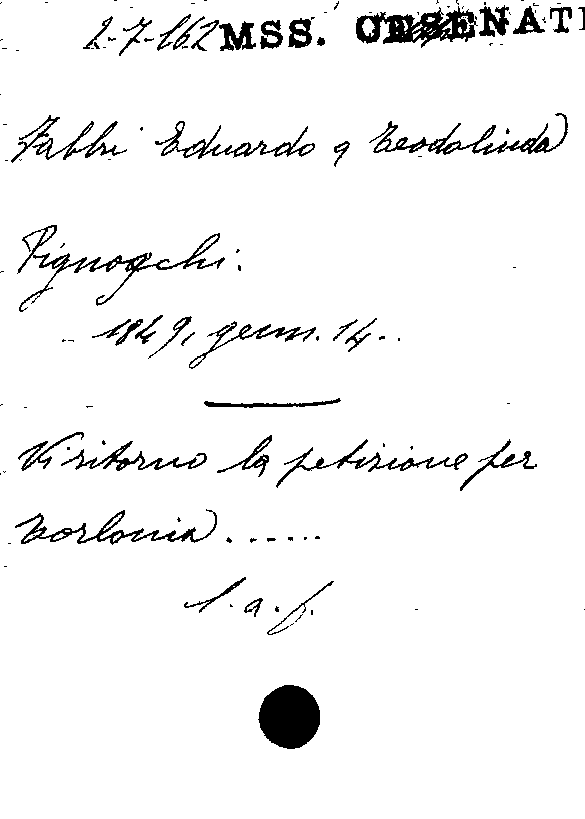 2-7-162 MSS. CESENATI
Fabbri Eduardo a Teodolinda
Pignocchi.
1849, genn. 14.
Vi ritorno la petizione per
Torlonia ......
l. a. f.